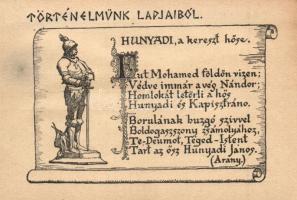 TÖRTÉNELMÜNK LAPJAIBÓL.
HUNYADI, a kereszt hőse.
Fut Mohamed földön vizen;
Védve immár a vég Nándor;
Homlokát letörli a hős
Hunyadi és Kapisztráno.
Borulának buzgó szivvel
Boldogasszony zsámolyához,
Te-Deumot, Téged-Istent
Tart az ősz Hunyadi János.
(Arany.)